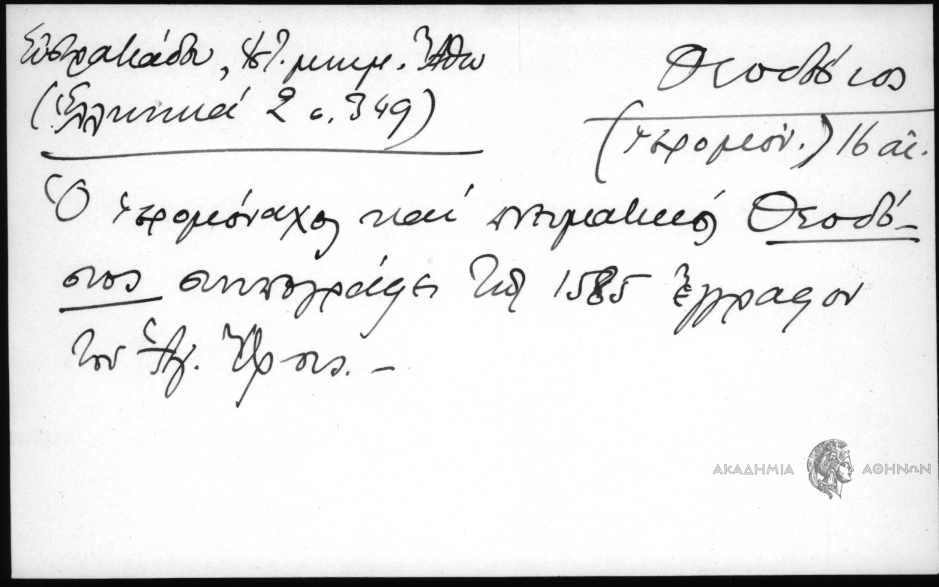 Εὐστρατιάδου, Ἱστ. μνημ. Ἄθω
(Ἑλληνικά 2 σ. 349)
Θεοδόσιος
(ἱερομόν.) 16 αἰ.
Ὁ ἱερομόναχος καί πνευματικός Θεοδό-
σιος συνυπογράφει τῷ 1585 ἔγγραφον
τοῦ Ἁγ. Ὄρους. –
ΑΚΑΔΗΜΙΑ ΑΘΗΝΩΝ